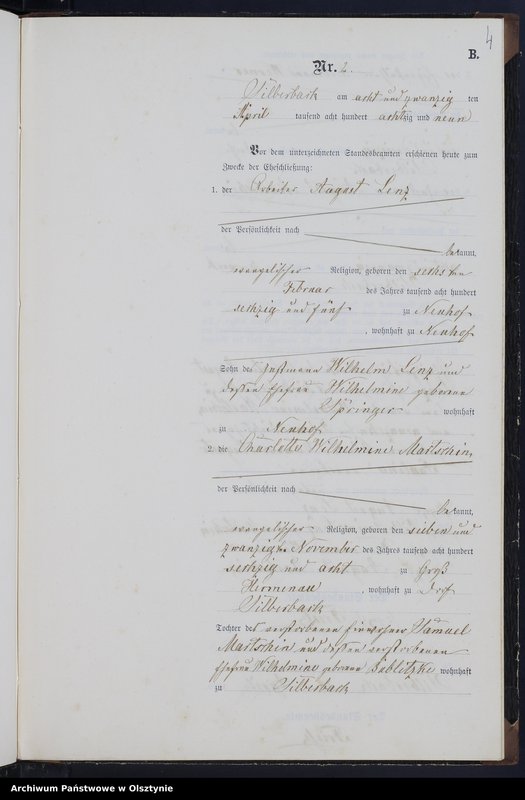 4
B.
Nr. 2.
Silberbach am acht und zwanzig ten
April tausend acht hundert achtzig und neun
Vor dem unterzeichneten Standesbeamten erschienen heute zum
Zwecke der Eheschließung:
1. der Arbeiter August Lenz
der Persönlichkeit nach
bekannt,
evangelischer Religion, geboren den sechsten
Februar des Jahres tausend acht hundert
sechzig und fünf zu Neuhof
, wohnhaft zu Neuhof
Sohn des Instmann Wilhelm Lenz und
dessen Ehefrau Wilhelmine geborene
Springer wohnhaft
zu Neuhof
2. die Charlotte Wilhelmine Martschin,
der Persönlichkeit nach
bekannt,
evangelischer Religion, geboren den sieben und
zwanzigten November des Jahres tausend acht hundert
sechzig und acht zu Groß
Hermenau, wohnhaft zu Dorf
Silberbach
Tochter des verstorbenen Einwohner Samuel
Martschin und dessen verstorbenen
Ehefrau Wilhelmine geborene wohnhaft
zu Silberbach
Archiwum Państwowe w Olsztynie